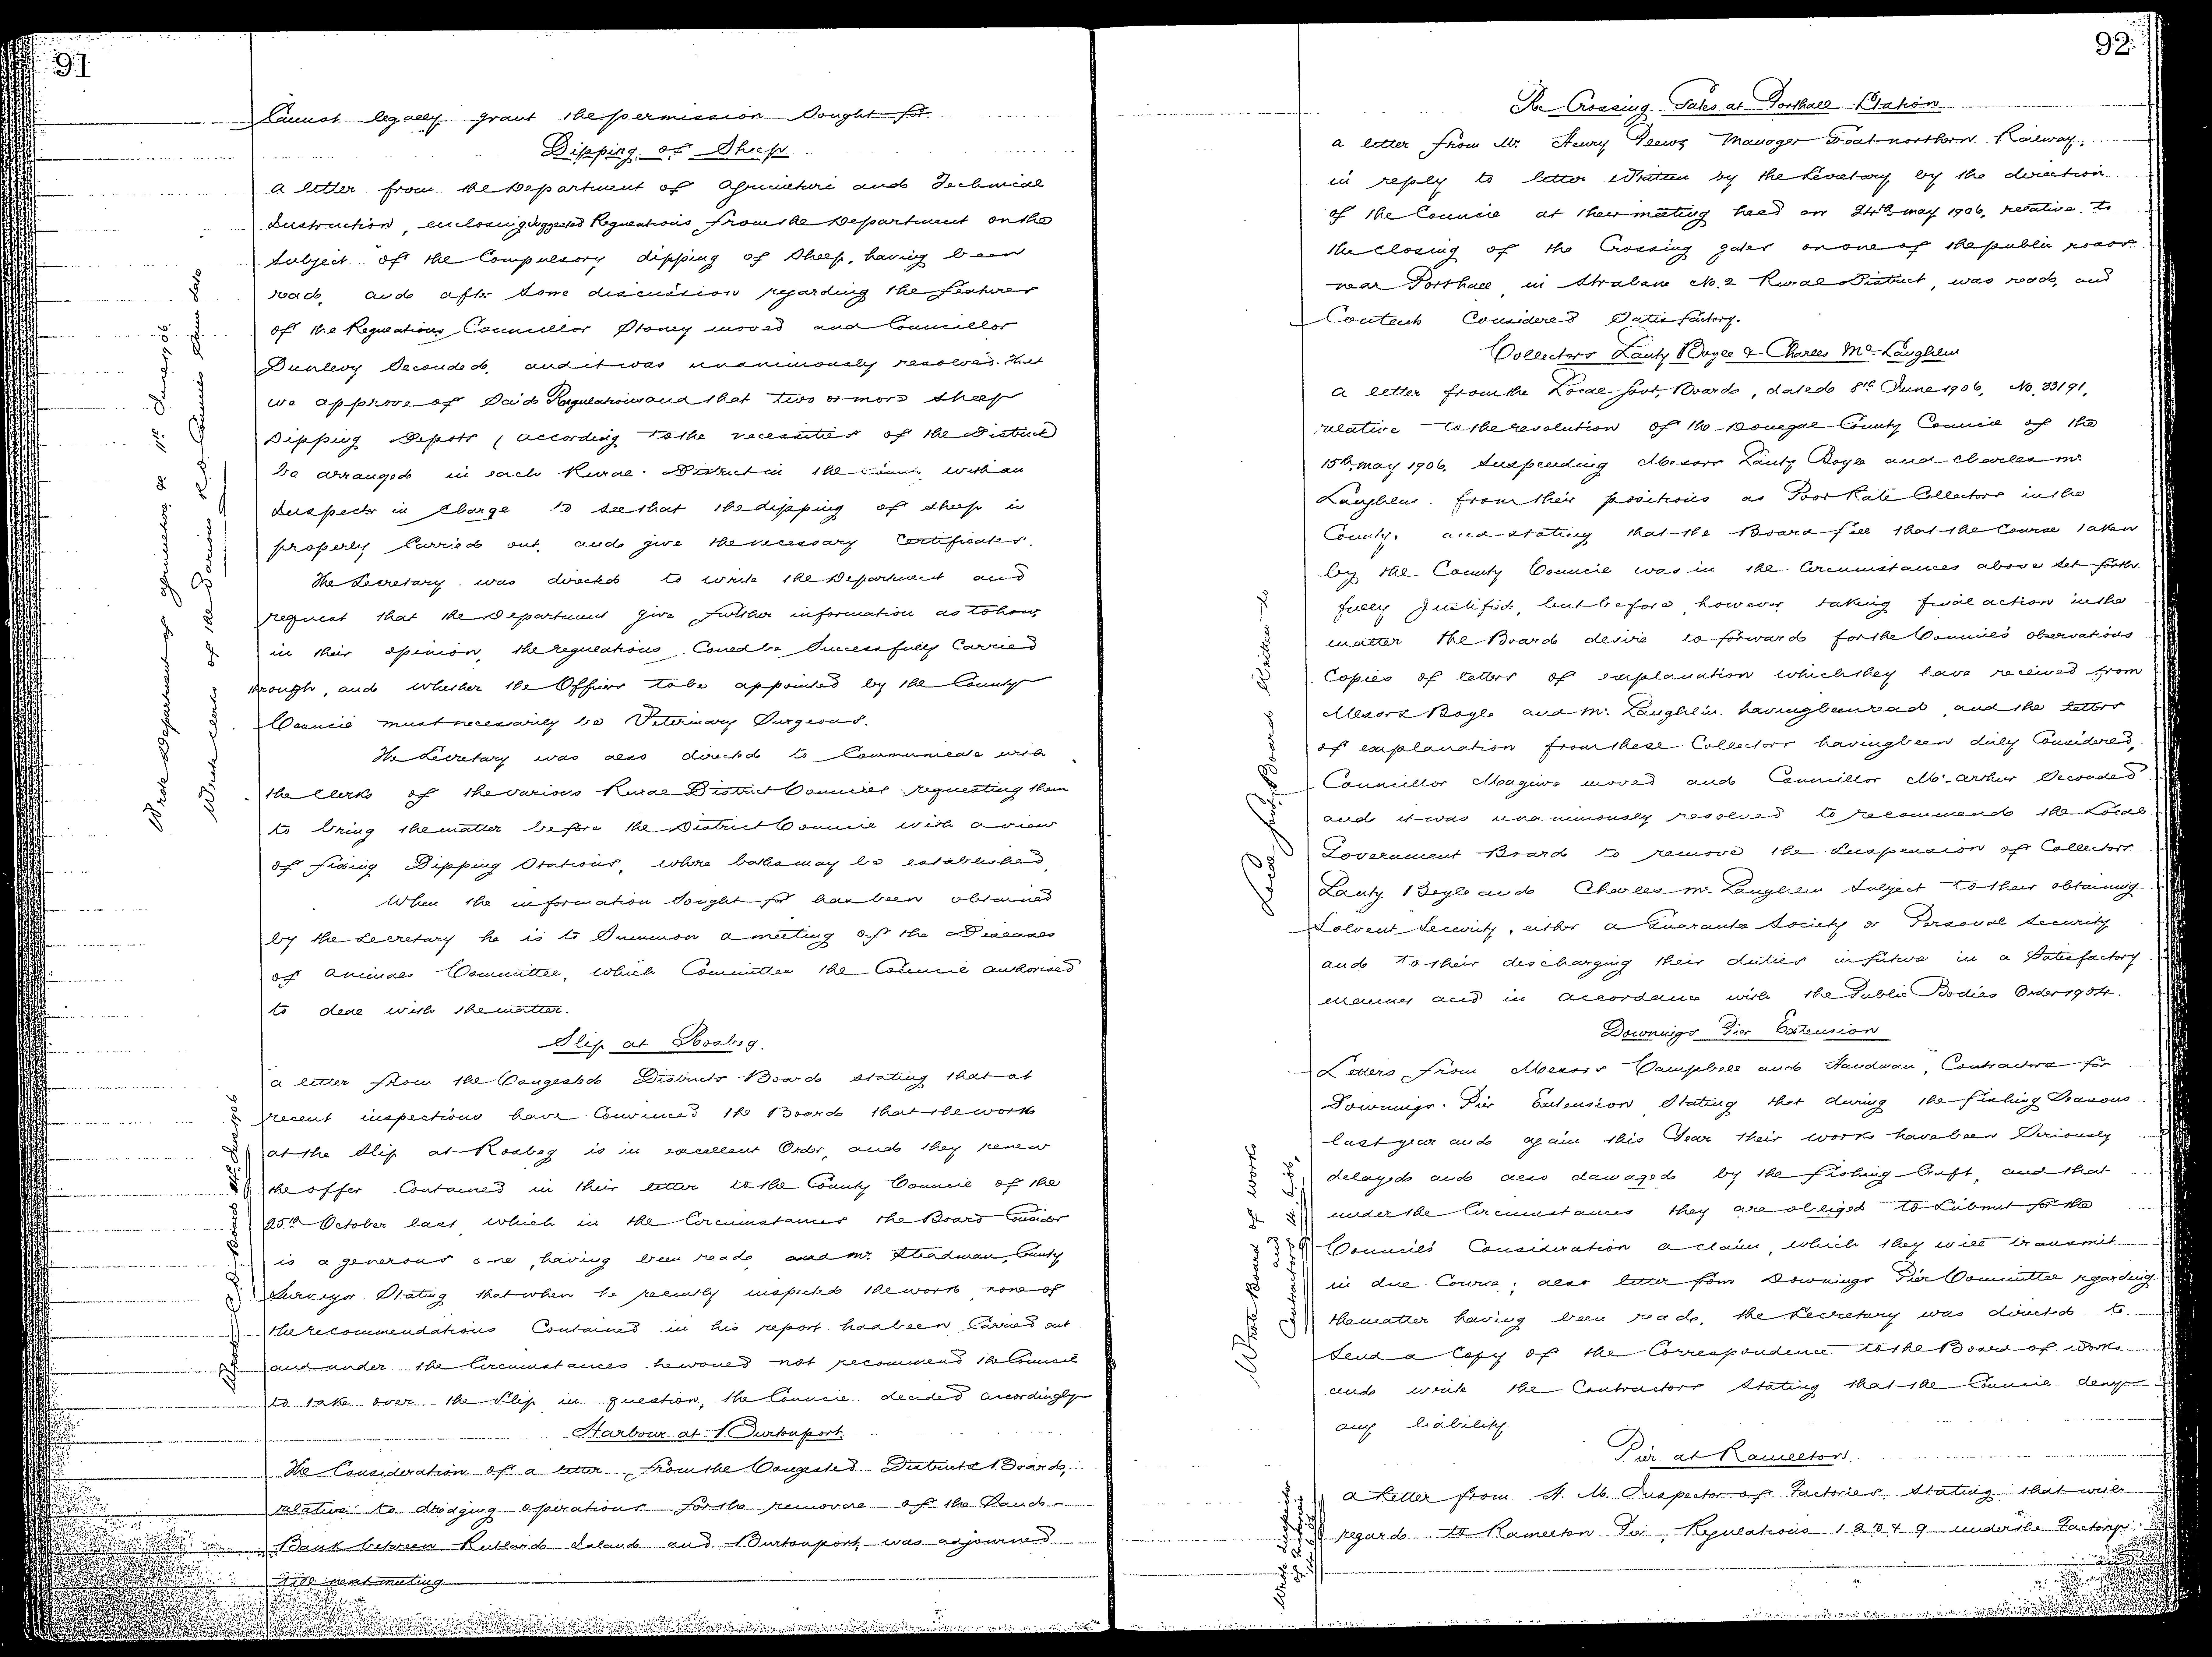 91
Cannot legally grant the permission Sought for.
Dipping of Sheep
a letter from the Department of Agriculture and Technical
Instruction, enclosing suggested Regulations from the Department on the
Subject of the Compulsory dipping of Sheep, having been
read, and after Some discussion regarding the features
of the Regulations Councillor Stoney moved and Councillor
Dunlevy Seconded, and it was unanimously resolved that
we approve of Said Regulations and that two or more Sheep
Dipping Depots (according to the necessities of the District
be arranged in each Rural District in the County with an
Inspector in Charge to see that the dipping of Sheep is
properly Carried out, and give the necessary Certificates.
The Secretary was directed to write the Department and
request that the Department give further information as to how,
in their opinion, the regulations Could be Successfully Carried
through, and whether the Officers to be appointed by the County
Council must necessarily be Veterinary Surgeons.
The Secretary was also directed to Communicate with
the Clerks of the various Rural District Councils requesting them
to bring the matter before the District Council with a view
of fixing Dipping Stations, where baths may be established.
When the information Sought for has been obtained
by the Secretary he is to Summon a meeting of the Diseases
of Animals Committee, which Committee the Council authorised
to deal with the matter.
Slip at Rosbeg.
a letter from the Congested Districts Board stating that at
recent inspections have Convinced the Board that the work
at the Slip at Rosbeg is in excellent Order, and they renew
the offer Contained in their letter to the County Council of the
25th October last, which in the Circumstances the Board Consider
is a generous one, having been read, and Mr. Steadman, County
Surveyor Stating that when he recently inspected the work none of
the recommendations Contained in his report had been Carried out
and under the Circumstances he would not recommend the Council
to take over the Slip in question, the Council decided accordingly
Harbour at Burtonport.
The Consideration of a letter from the Congested Districts Board,
relative to dredging operations for the removal of the Sand
Bank between Rutland Island and Burtonport, was adjourned
till next meeting
Wrote Department of Agriculture, &c 11th June 1906
Wrote Clerks of the Various R.D. Councils Same date
Wrote C.D. Board June 1906
92
The Crossing Gates at Porthall Station
a letter from Mr. Henry Plews Manager Great northern Railway,
in reply to letter Written by the Secretary by the direction
of the Council at their meeting held on 24th May 1906, relative to
the closing of the Crossing gates on one of the public roads
near Porthall, in Strabane No. 2 Rural District, was read, and
Contents Considered Satisfactory.
Collectors Lanty Boyle & Charles McLaughlin
a letter from the Local Govt. Board, dated 8th June 1906, No. 33191,
relative to the resolution of the Donegal County Council of the
15th May 1906. Suspending Messrs Lanty Boyle and Charles Mc
Laughlin from their positions as Poor Rate Collectors in the
County, and stating that the Board feel that the Course taken
by the County Council was in the Circumstances above Set forth
fully justified, but before, however taking final action in the
matter the Board desire to forward for the Council's observations
Copies of letters of explanation which they have received from
Messrs Boyle and McLaughlin having been read, and the letters
of explanation from these Collectors having been duly Considered,
Councillor Maguire moved and Councillor McArthur Seconded
and it was unanimously resolved to recommend the Local
Government Board to remove the Suspension of Collectors
Lanty Boyle and Charles McLaughlin Subject to their obtaining
Solvent Security, either a Guarantee Society or Personal Security
and to their discharging their duties in future in a Satisfactory
manner and in accordance with the Public Bodies Order 1904.
Downings Pier Extension
Letters from Messrs Campbell and Handman, Contractors for
Downings Pier Extension Stating that during the fishing Seasons
last year and again this Year their works have been Seriously
delayed and also damaged by the fishing Craft, and that
under the Circumstances they are obliged to Submit for the
Council's Consideration a claim, which they will transmit
in due Course; also letter from Downings Pier Committee regarding
the matter having been read, the Secretary was directed to
Send a Copy of the Correspondence to the Board of Works
and write the Contractors Stating that the Council deny
any liability.
Pier at Ramelton.
a Letter from H. M. Inspector of Factories, Stating that with
regard to Ramelton Pier, Regulations 1 2 3 & 9 under the Factory
Local Govt. Board Written to
Wrote Board of Works
and
Contractors
Wrote Inspector
of Factories